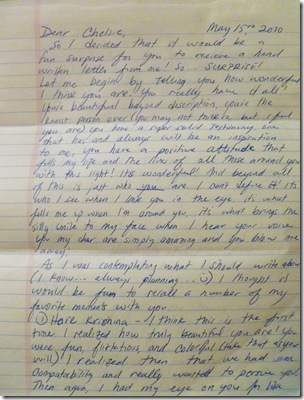 Dear Chelsie, May 15th 2010
So I decided that it would be a
fun surprise for you to recieve a hand
written letter from me! So - SURPRISE!
Let me begin by telling you how wonderful
I think you are! You really have it all!
You're beautiful beyond description, you're the
person ever (you may not think so, but I find
you are) you have a rock solid testimony, one
that has and always will be an inspiration
to me, you have a positive attitude that
fills my life and the lives of all those around you
with this light! It's wonderful! And beyond all
of this is just who you are. I can't define it! it's
who I see when I look you in the eye. its what
fills me up when I'm around you, its what brings the
silly smile to my face when I hear your voice.
You my dear are simply amazing and you blow me
away!
As I was contemplating what I should write about
(I know... always planning...) I thought it
would be fun to recall a number of my
favorite moments with you.
① Hare Krishna - I think this is the first
time I realized how truly beautiful you are! You
were fun, flirtatious, and colorful (take that as you
will) I realized then that we had some
compatability and really wanted to persue you.
Then again, I had my eye on you for